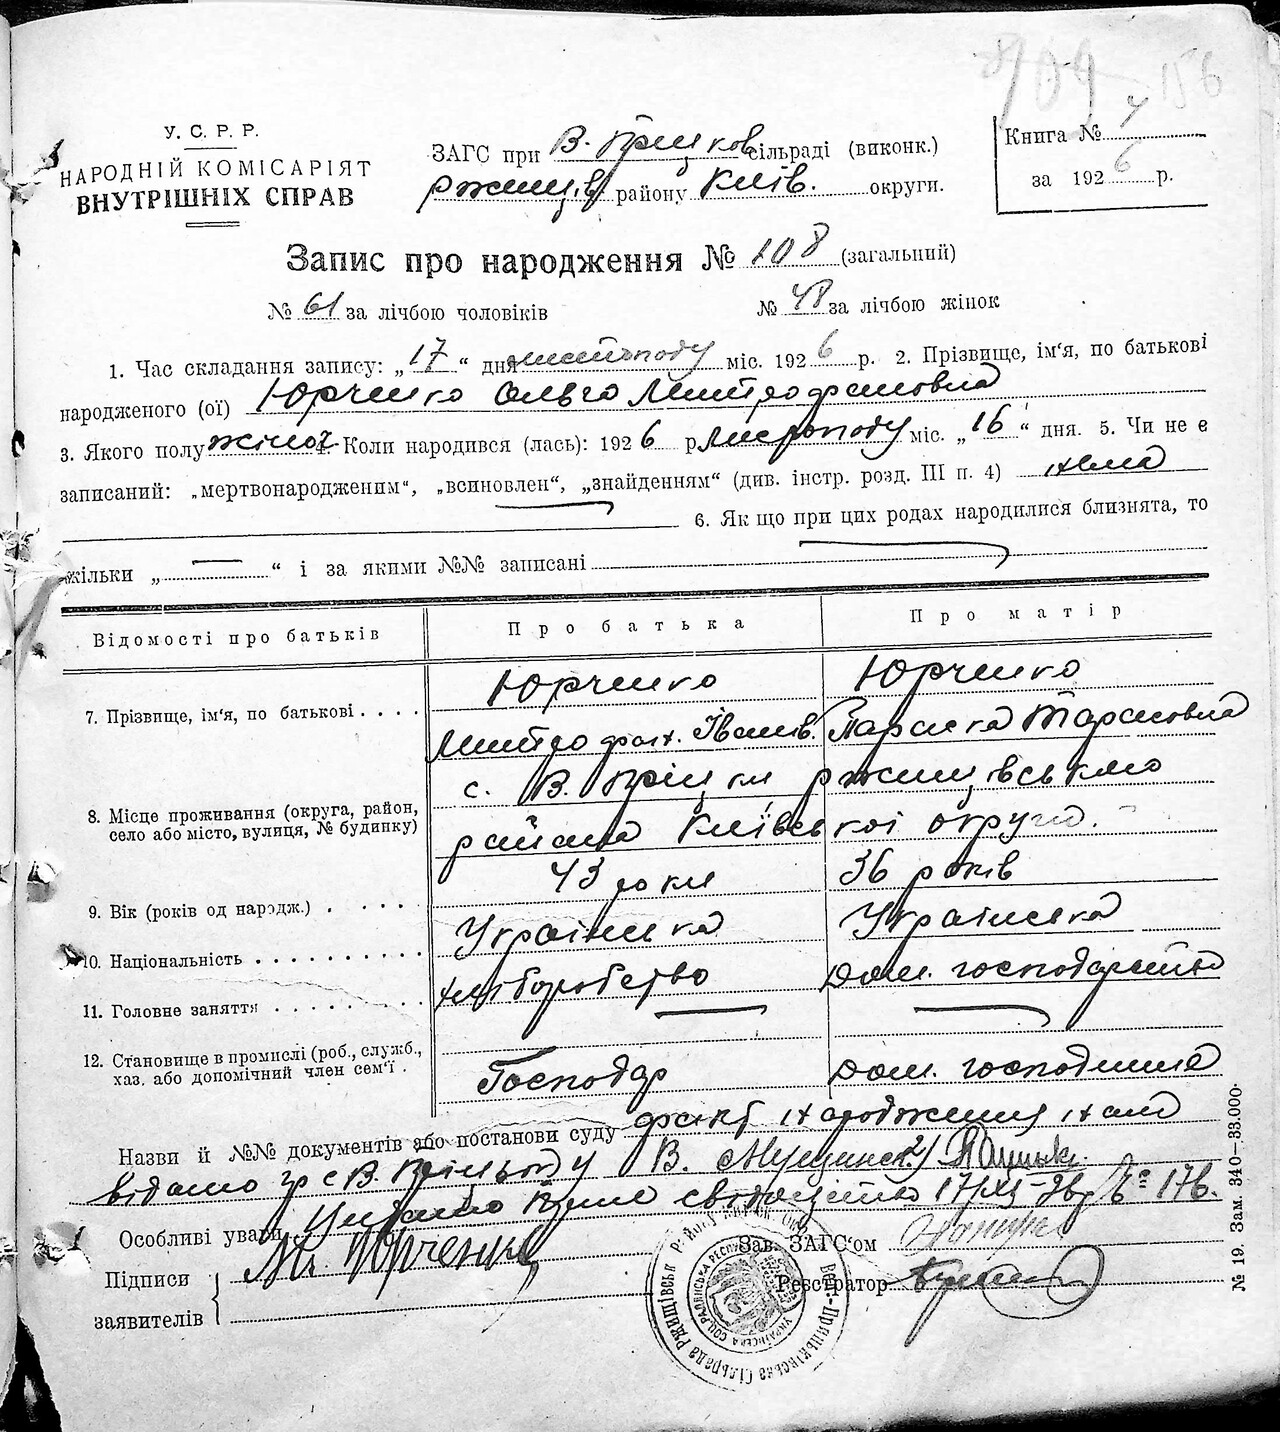 156
У. С. Р. Р.
НАРОДНІЙ КОМІСАРІЯТ
ВНУТРІШНІХ СПРАВ
ЗАГС при В. Пріцков сільраді (виконк.)
Ржищів району Київ. округи.
Книга № 4
за 1926 р.
Запис про народження № 108 (загальний)
№ 61 за лічбою чоловіків
№ 48 за лічбою жінок
1. Час складання запису: „17“ дня листопаду міс. 1926 р. 2. Прізвище, ім‘я, по батькові
народженого (ої) Юрченко Ольга Митрофановна
3. Якого полу жіноч 4. Коли народився (лась): 1926 р. Листопаду міс. „16“ дня. 5. Чи не є
записаний: „мертвонародженим“, „всиновлен“, „знайденням“ (див. інстр. розд. III п. 4) нема
6. Як що при цих родах народилися близнята, то
кільки „ — “ і за якими №№ записані
Відомості про батьків
Про батька
Про матір
7. Прізвище, ім‘я, по батькові . . . .
Юрченко
Митрофан. Іванів.
Юрченко
Параска Тарасовна
8. Місце проживання (округа, район,
село або місто, вулиця, № будинку)
с. В. Пріцки Ржищівського
района Київської округи.
9. Вік (років од народж.) . . . . .
43 роки
36 років
10. Національність . . . . . . . . . .
Українська
Українська
11. Головне заняття . . . . . . .
хліборобство
Дом. господарство
12. Становище в промислі (роб., служб.,
хаз. або допомічний член сем‘ї .
Господар
Дом. господиня
Назви й №№ документів або постанови суду факт народження нам
відамо гр с В.
Особливі уваги Видано свідоцтво 17/XI-26р № 176.
Підписи
заявителів
Мт. Юрченко
Зав. ЗАГС‘ом
Реєстратор
Ржищівськ. Району Київськ. Окр.
Вел.-Пріцьківська Сільрада
УКРАЇНСЬКА СОЦ. РАДЯНСЬКА РЕСПУБЛІКА
№ 19. Зам. 340—33.000.